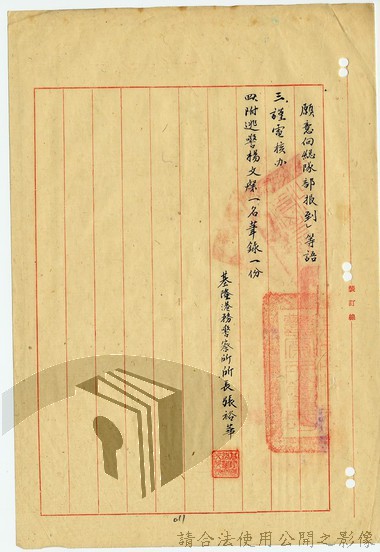 願意向總隊部报到」等語
三、謹電核办
四、附逃警楊文燦一名筆錄一份
基隆港務警察所所長張裕華
裝訂線
011
請合法使用公開之影像